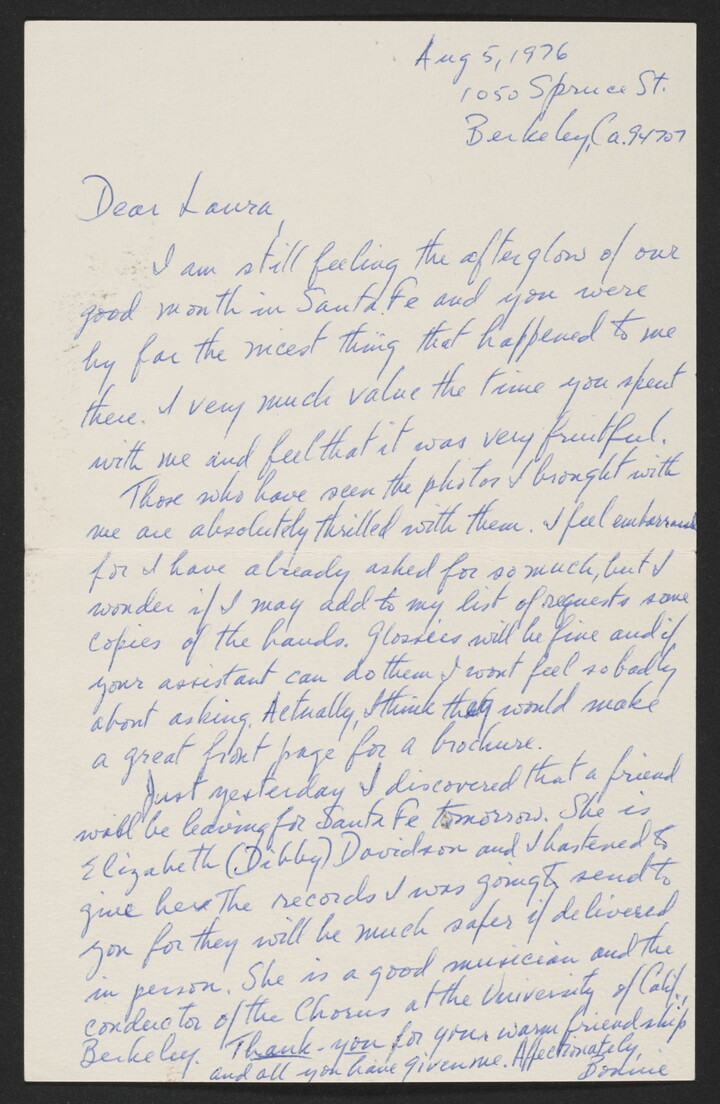 Aug 5, 1976
1050 Spruce St.
Berkeley, Ca. 94707
Dear Laura,
I am still feeling the afterglow of our
good month in Santa Fe and you were
by far the nicest thing that happened to me
there. I very much value the time you spent
with me and feel that it was very fruitful.
Those who have seen the photos I brought with
me are absolutely thrilled with them. I feel embarrassed
for I have already asked for so much, but I
wonder if I may add to my list of requests some
copies of the hands. Glossies will be fine and if
your assistant can do them I wont feel so badly
about asking. Actually, I think they would make
a great front page for a brochure.
Just yesterday I discovered that a friend
will be leaving for Santa Fe tomorrow. She is
Elizabeth (Dibby) Davidson and I hastened to
give her the records I was going to send to
you for they will be much safer if delivered
in person. She is a good musician and the
conductor of the Chorus at the University of Calif,
Berkeley. Thank-you for your warm friendship
and all you have given me. Affectionately,
Bonnie